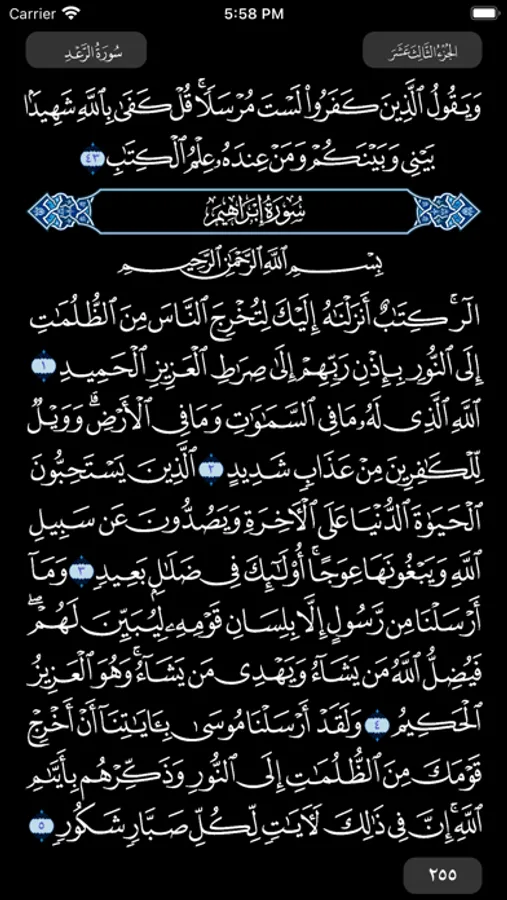 Carrier 5:58 PM
سُورَةُ الرَّعْدِ الجُزْءُ الثَّالِثَ عَشَرَ
وَيَقُولُ ٱلَّذِينَ كَفَرُوا۟ لَسْتَ مُرْسَلًۭا ۚ قُلْ كَفَىٰ بِٱللَّهِ شَهِيدًۢا
بَيْنِى وَبَيْنَكُمْ وَمَنْ عِندَهُۥ عِلْمُ ٱلْكِتَٰبِ ٤٣
سُورَةُ إِبْرَاهِيمَ
بِسْمِ ٱللَّهِ ٱلرَّحْمَٰنِ ٱلرَّحِيمِ
الٓر ۚ كِتَٰبٌ أَنزَلْنَٰهُ إِلَيْكَ لِتُخْرِجَ ٱلنَّاسَ مِنَ ٱلظُّلُمَٰتِ
إِلَى ٱلنُّورِ بِإِذْنِ رَبِّهِمْ إِلَىٰ صِرَٰطِ ٱلْعَزِيزِ ٱلْحَمِيدِ ١
ٱللَّهِ ٱلَّذِى لَهُۥ مَا فِى ٱلسَّمَٰوَٰتِ وَمَا فِى ٱلْأَرْضِ ۗ وَوَيْلٌۭ
لِّلْكَٰفِرِينَ مِنْ عَذَابٍۢ شَدِيدٍ ٢ ٱلَّذِينَ يَسْتَحِبُّونَ
ٱلْحَيَوٰةَ ٱلدُّنْيَا عَلَى ٱلْءَاخِرَةِ وَيَصُدُّونَ عَن سَبِيلِ
ٱللَّهِ وَيَبْغُونَهَا عِوَجًا ۚ أُو۟لَٰٓئِكَ فِى ضَلَٰلٍۭ بَعِيدٍۢ ٣ وَمَآ
أَرْسَلْنَا مِن رَّسُولٍ إِلَّا بِلِسَانِ قَوْمِهِۦ لِيُبَيِّنَ لَهُمْ ۖ
فَيُضِلُّ ٱللَّهُ مَن يَشَآءُ وَيَهْدِى مَن يَشَآءُ ۚ وَهُوَ ٱلْعَزِيزُ
ٱلْحَكِيمُ ٤ وَلَقَدْ أَرْسَلْنَا مُوسَىٰ بِـَٔايَٰتِنَآ أَنْ أَخْرِجْ
قَوْمَكَ مِنَ ٱلظُّلُمَٰتِ إِلَى ٱلنُّورِ وَذَكِّرْهُم بِأَيَّىٰمِ
ٱللَّهِ ۚ إِنَّ فِى ذَٰلِكَ لَءَايَٰتٍۢ لِّكُلِّ صَبَّارٍۢ شَكُورٍۢ ٥
٢٥٥